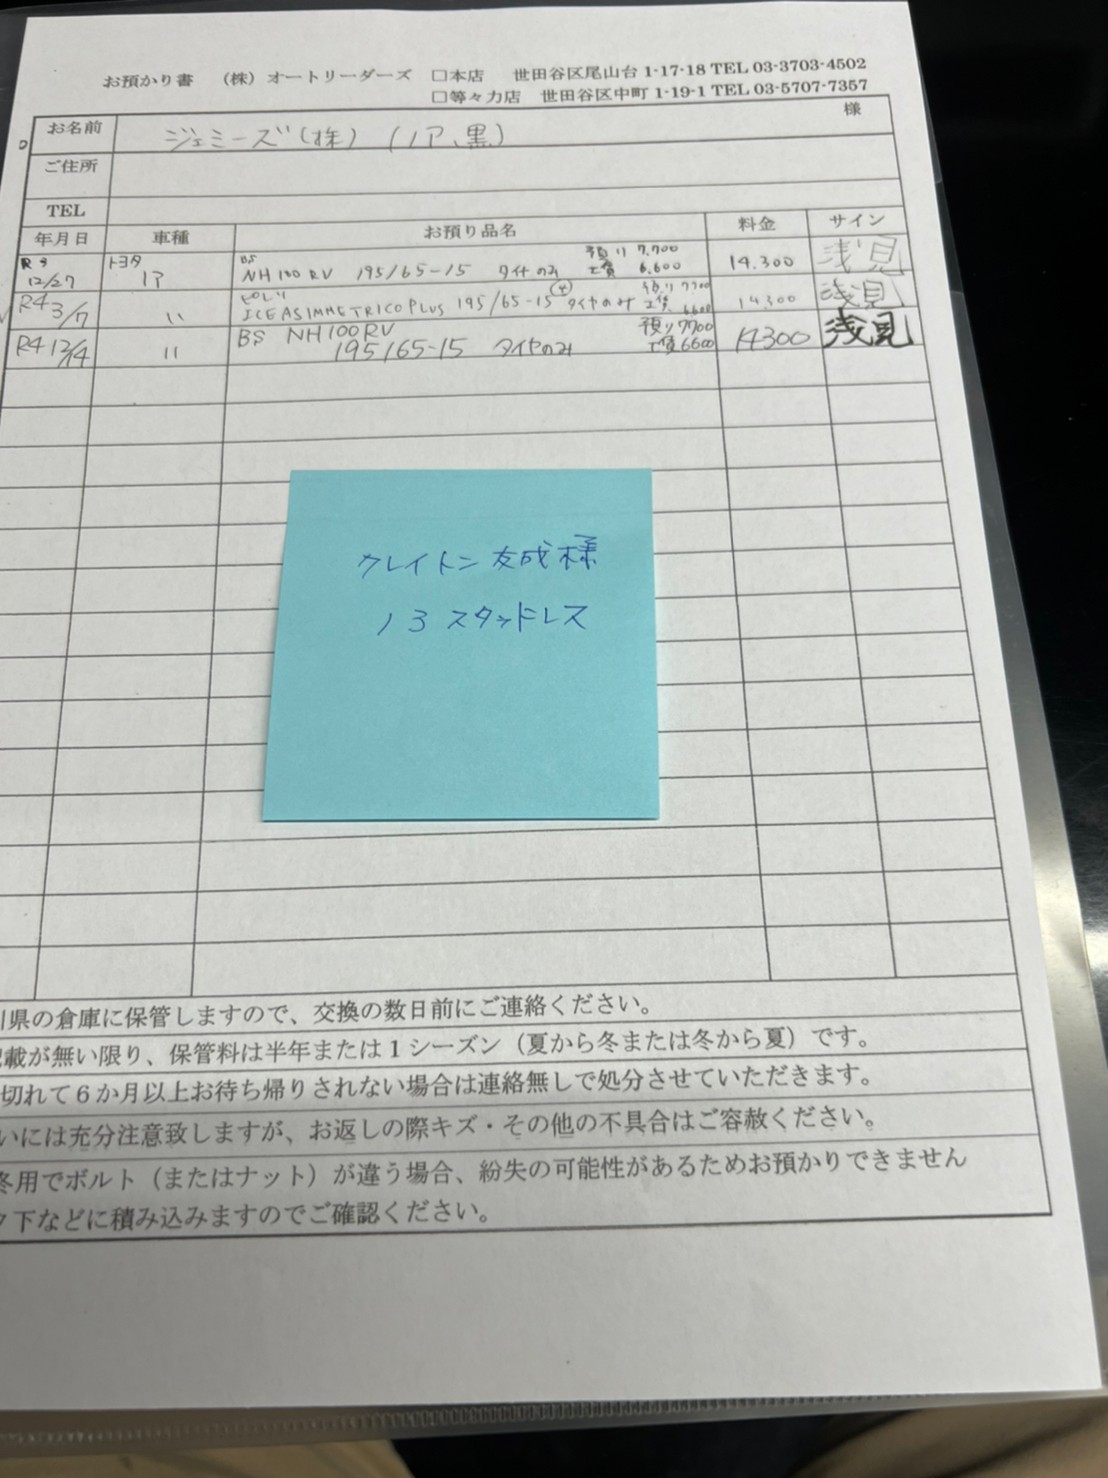 お預かり書 （株）オートリーダーズ □本店 世田谷区尾山台 1-17-18 TEL 03-3703-4502
□等々力店 世田谷区中町 1-19-1 TEL 03-5707-7357
お名前 ジェミーズ（株）（ノア、黒） 様
ご住所
TEL
年月日 車種 お預り品名 料金 サイン
R3 12/27 トヨタ ノア BS NH100 RV 195/65-15 タイヤのみ 預り 7,700 工賃 6,600 14.300 浅見
R4 3/7 〃 ピレリ ICE ASIMMETRICO PLUS 195/65-15 ④ タイヤのみ 預り 7700 工賃 6600 14300 浅見
R4 12/14 〃 BS NH100RV 預り7700
195/65-15 タイヤのみ 工賃6600 14300 浅見
クレイトン 友成様
13 スタッドレス
川県の倉庫に保管しますので、交換の数日前にご連絡ください。
記載が無い限り、保管料は半年または1シーズン（夏から冬または冬から夏）です。
切れて６か月以上お待ち帰りされない場合は連絡無しで処分させていただきます。
いには充分注意致しますが、お返しの際キズ・その他の不具合はご容赦ください。
冬用でボルト（またはナット）が違う場合、紛失の可能性があるためお預かりできません
ク下などに積み込みますのでご確認ください。